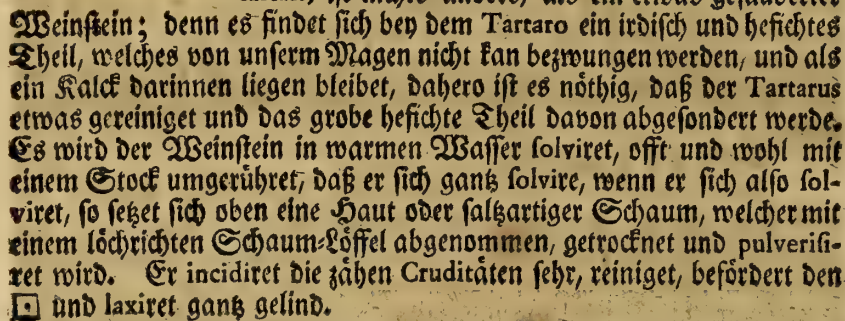 Weinstein; denn es findet sich bey dem Tartaro ein irdisch und hefichtes
Theil, welches von unserm Magen nicht kan bezwungen werden, und als
ein Kalck darinnen liegen bleibet, dahero ist es nöthig, daß der Tartarus
etwas gereiniget und das grobe hefichte Theil davon abgesondert werde.
Es wird der Weinstein in warmen Wasser solviret, offt und wohl mit
einem Stock umgerühret, daß er sich gantz solvire, wenn er sich also sol-
viret, so setzet sich oben eine Haut oder saltzartiger Schaum, welcher mit
einem löchrichten Schaum-Löffel abgenommen, getrocknet und pulverisi-
ret wird. Er incidiret die zähen Cruditäten sehr, reiniget, befördert den
⊡ und laxiret gantz gelind.